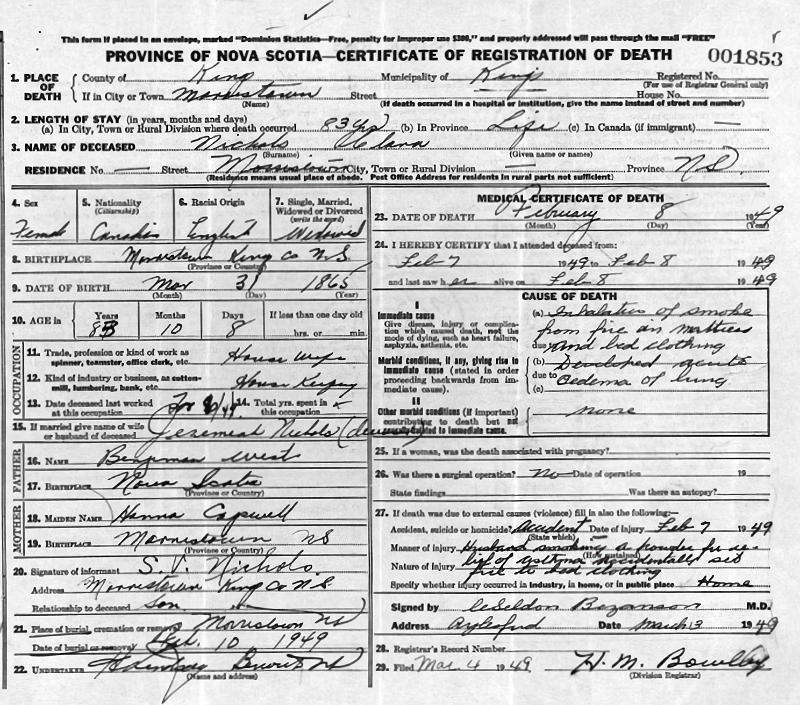 This form if placed in an envelope, marked "Dominion Statistics—Free, penalty for improper use $300," and properly addressed will pass through the mail "FREE"
PROVINCE OF NOVA SCOTIA—CERTIFICATE OF REGISTRATION OF DEATH 001853
1. PLACE OF DEATH County of Kings Municipality of Kings Registered No. (For use of Registrar General only)
If in City or Town Morristown (Name) Street House No.
(If death occurred in a hospital or institution, give the name instead of street and number)
2. LENGTH OF STAY (in years, months and days)
(a) In City, Town or Rural Division where death occurred 83 yrs (b) in Province Life (c) In Canada (if immigrant) —
3. NAME OF DECEASED Nichols (Surname) Clara (Given name or names)
RESIDENCE No. — Street Morristown City, Town or Rural Division — Province N.S.
(Residence means usual place of abode. Post Office Address for residents in rural parts not sufficient)
4. Sex 5. Nationality (Citizenship) 6. Racial Origin 7. Single, Married, Widowed or Divorced (write the word)
Female Canadian English Widowed
8. BIRTHPLACE Morristown King Co N.S. (Province or Country)
9. DATE OF BIRTH Mar 31 1865 (Month) (Day) (Year)
10. AGE in Years Months Days If less than one day old
83 10 8 hrs. or min.
OCCUPATION
11. Trade, profession or kind of work as spinner, teamster, office clerk, etc. House wife
12. Kind of industry or business, as cotton-mill, lumbering, bank, etc. House Keeping
13. Date deceased last worked at this occupation 14. Total yrs. spent in this occupation
15. If married give name of wife or husband of deceased Jeremiah Nichols (deceased)
FATHER
16. NAME Benjman West
17. BIRTHPLACE Nova Scotia (Province or Country)
MOTHER
18. MAIDEN NAME Hanna Capwell
19. BIRTHPLACE Morristown NS (Province or Country)
20. Signature of informant S. V. Nichols
Address Morristown King Co N.S.
Relationship to deceased son
21. Place of burial, cremation or removal Morristown NS
Date of burial or removal Feb. 10 1949
22. UNDERTAKER NS (Name and address)
MEDICAL CERTIFICATE OF DEATH
23. DATE OF DEATH February 8 1949 (Month) (Day) (Year)
24. I HEREBY CERTIFY that I attended deceased from:
Feb 7 1949 to Feb 8 1949
and last saw her alive on Feb 8 1949
CAUSE OF DEATH
I
Immediate cause
Give disease, injury or complication which caused death, not the mode of dying, such as heart failure, asphyxia, asthenia, etc.
(a) Inhalation of smoke from fire in mattress
due to and bed clothing
Morbid conditions, if any, giving rise to immediate cause (stated in order proceeding backwards from immediate cause).
(b) Developed acute
due to Oedema of lung
(c)
II
Other morbid conditions (if important) contributing to death but not causally related to immediate cause.
none
25. If a woman, was the death associated with pregnancy?
26. Was there a surgical operation? No Date of operation 19
State findings Was there an autopsy?
27. If death was due to external causes (violence) fill in also the following:—
Accident, suicide or homicide? Accident (State which) Date of injury Feb 7 1949
Manner of injury Husband smoking a powder for re- (How sustained)
Nature of injury lief of asthma accidentally set fire to bed clothing
Specify whether injury occurred in industry, in home, or in public place Home
Signed by Bezanson M.D.
Address Aylesford Date March 3 1949
28. Registrar's Record Number
29. Filed Mar. 4 1949 H. M. Bowlby (Division Registrar)